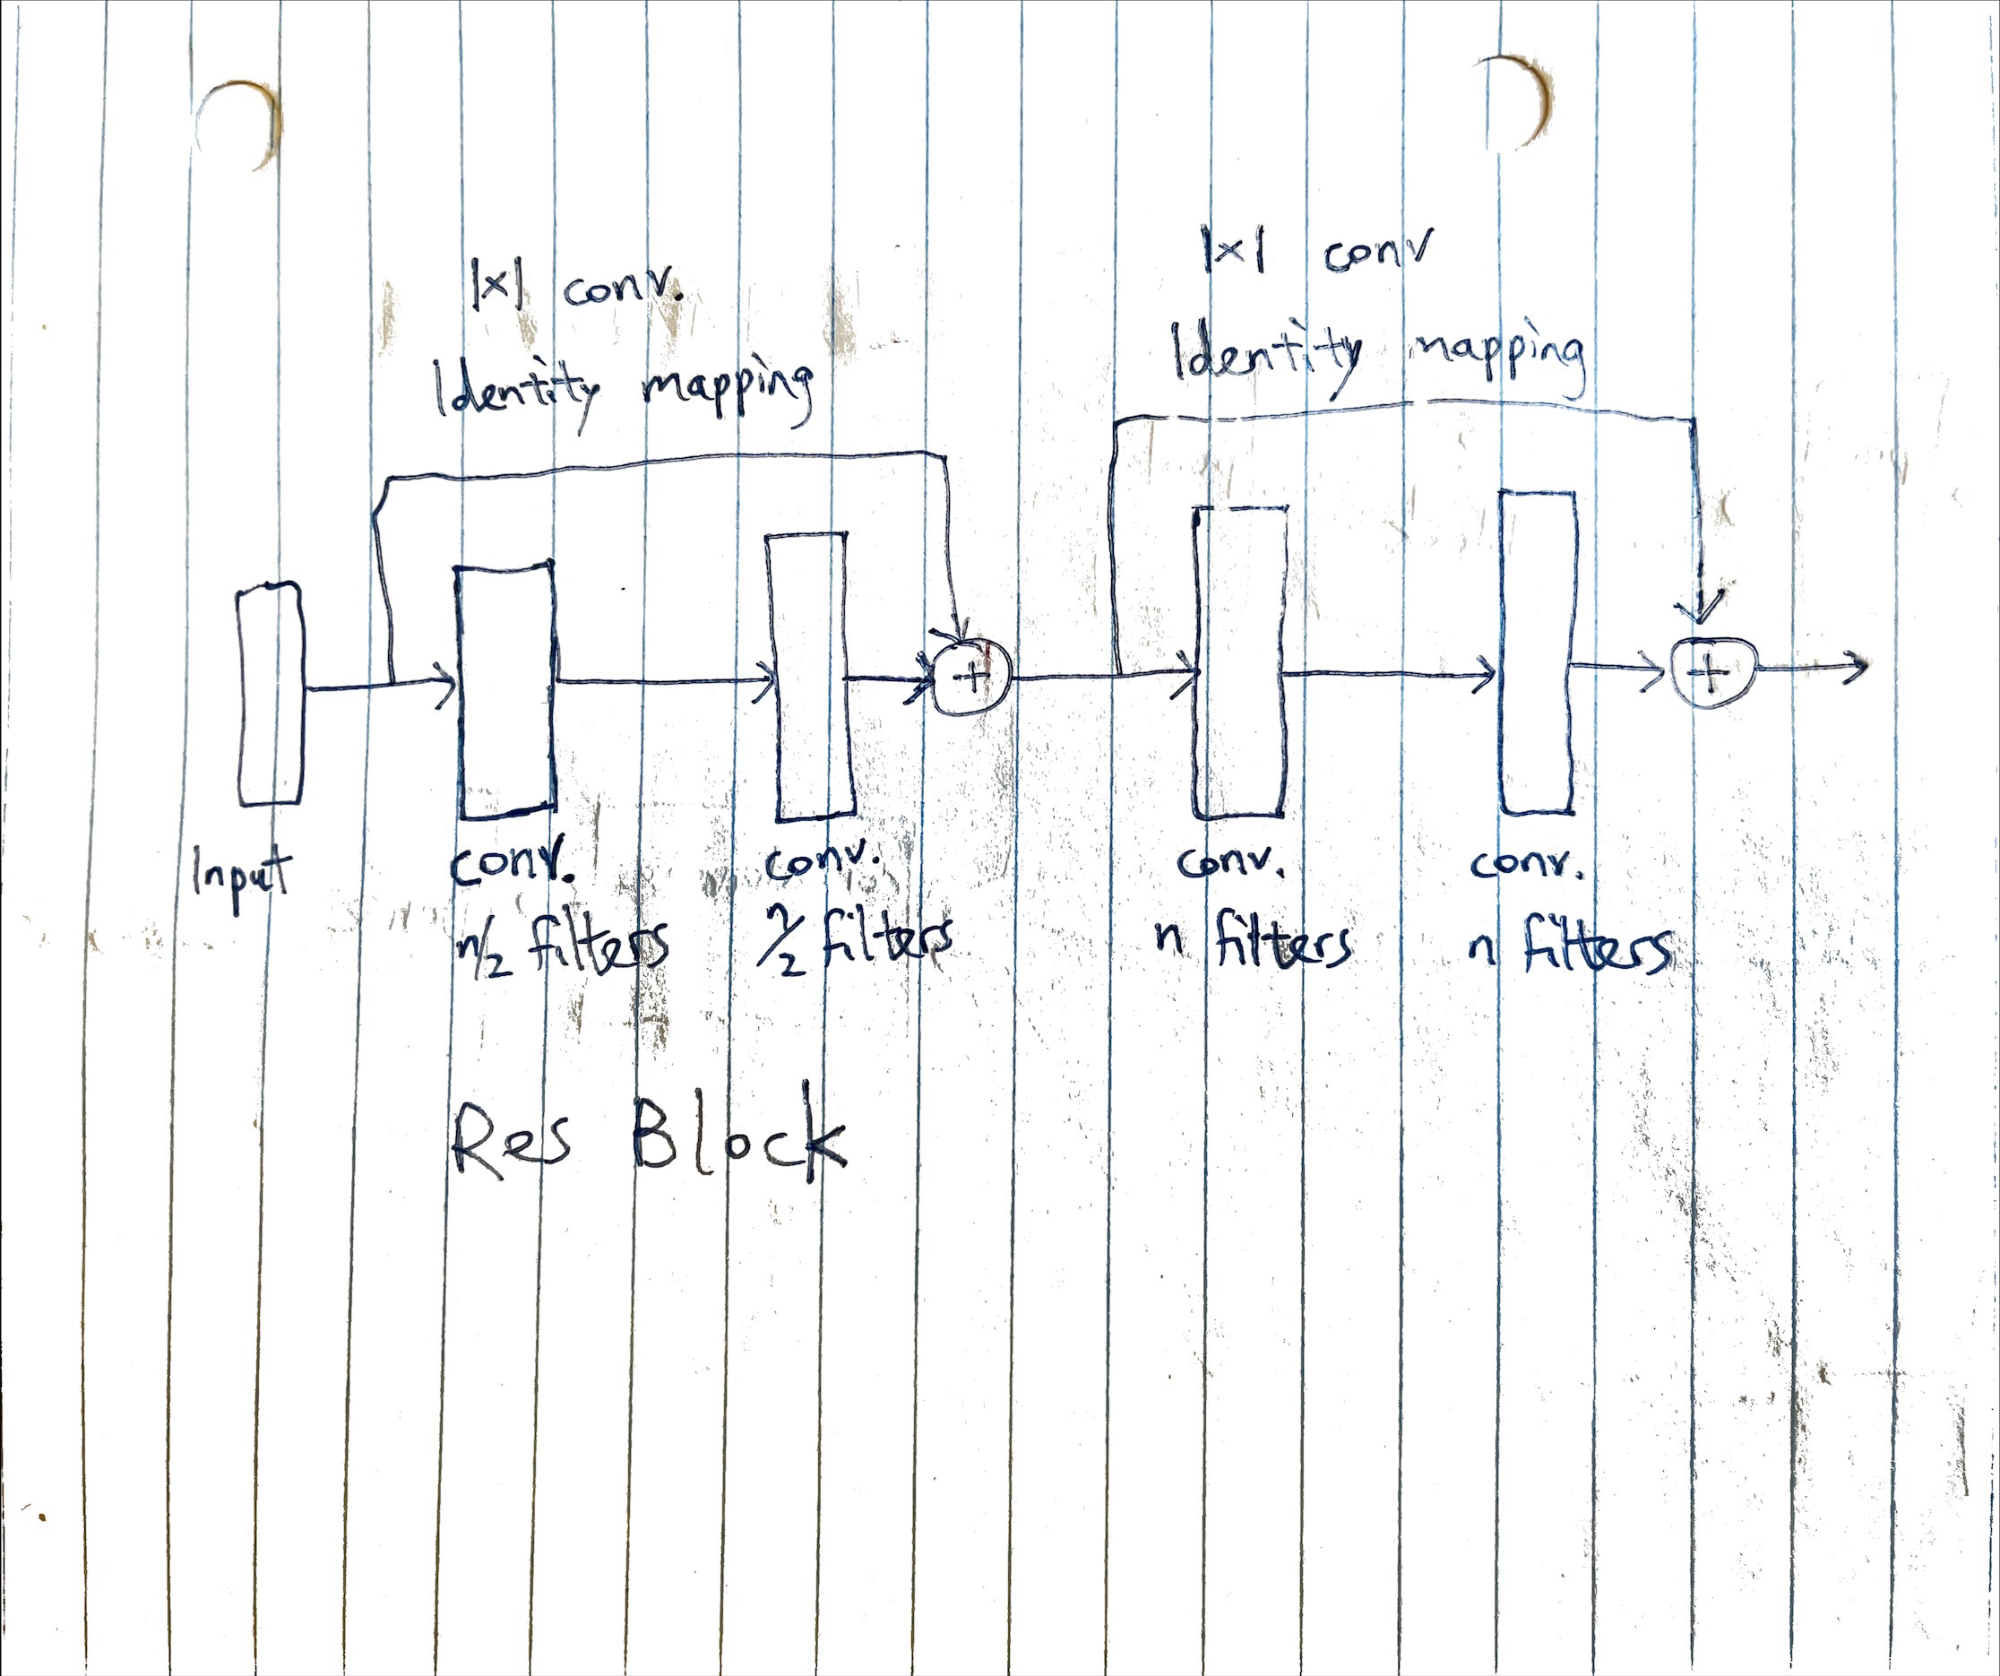 1x1 conv.
Identity mapping
1x1 conv
Identity mapping
+
+
Input
conv.
n/2 filters
conv.
n/2 filters
conv.
n filters
conv.
n filters
Res Block